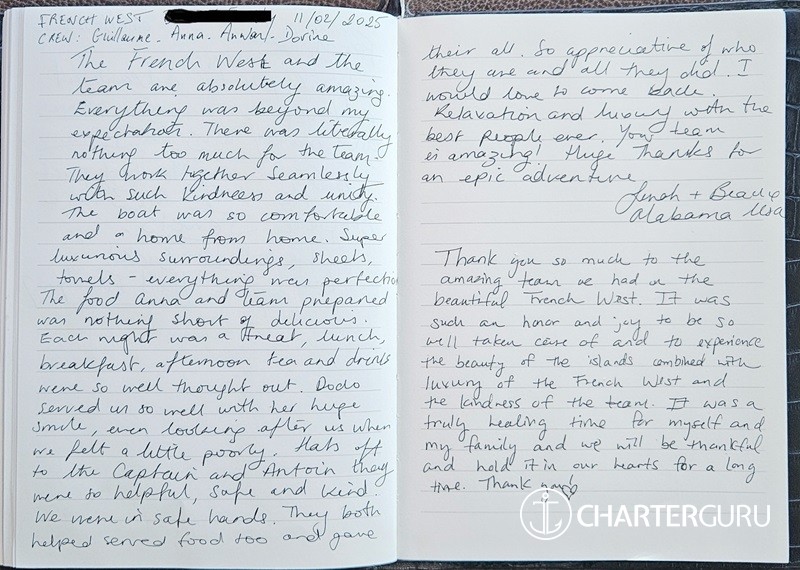 FRENCH WEST 11/02/2025
CREW: Guillaume. Anna. Anwar. Dorine
The French West and the
team are absolutely amazing.
Everything was beyond my
expectation. There was literally
nothing too much for the team.
They work together seamlessly
with such kindness and unity.
The boat was so comfortable
and a home from home. Super
luxurious surroundings, sheets,
towels - everything was perfection
The food Anna and team prepared
was nothing short of delicious.
Each night was a treat, lunch,
breakfast, afternoon tea and drinks
were so well thought out. Dodo
served us so well with her huge
smile, even looking after us when
we felt a little poorly. Hats off
to the Captain and Antoin they
were so helpful, safe and kind.
We were in safe hands. They both
helped served food too and gave
their all. So appreciative of who
they are and all they did. I
would love to come back.
Relaxation and luxury with the
best people ever. Your team
is amazing! Huge Thanks for
an epic adventure
+
Alabama USA
Thank you so much to the
amazing team we had on the
beautiful French West. It was
such an honor and joy to be so
well taken care of and to experience
the beauty of the islands combined with
luxury of the French West and
the kindness of the team. It was a
truly healing time for myself and
my family and we will be thankful
and hold it in our hearts for a long
time. Thank you
CHARTERGURU